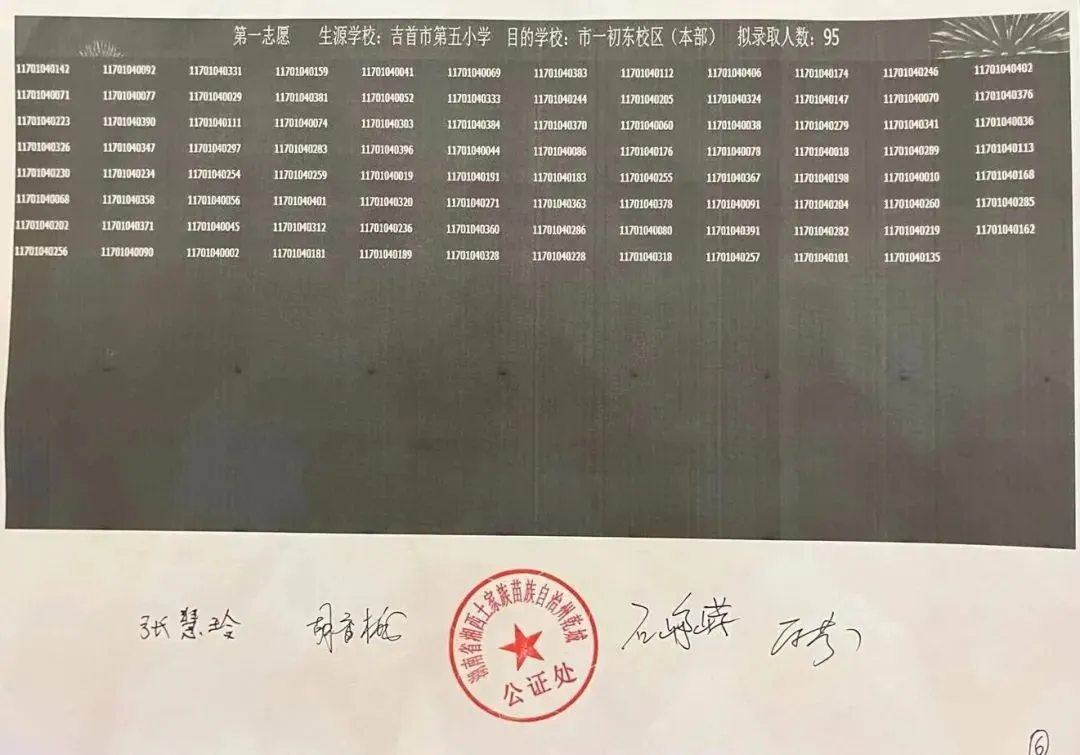 第一志愿 生源学校：吉首市第五小学 目的学校：市一初东校区（本部） 拟录取人数：95
11701040142 11701040092 11701040331 11701040159 11701040041 11701040069 11701040383 11701040112 11701040406 11701040174 11701040246 11701040402
11701040071 11701040077 11701040029 11701040381 11701040052 11701040333 11701040244 11701040205 11701040324 11701040147 11701040070 11701040376
11701040223 11701040390 11701040111 11701040074 11701040303 11701040384 11701040370 11701040060 11701040038 11701040279 11701040341 11701040036
11701040326 11701040347 11701040297 11701040283 11701040396 11701040044 11701040086 11701040176 11701040078 11701040018 11701040289 11701040113
11701040230 11701040234 11701040254 11701040259 11701040019 11701040191 11701040183 11701040255 11701040367 11701040198 11701040010 11701040168
11701040068 11701040358 11701040056 11701040401 11701040320 11701040271 11701040363 11701040378 11701040091 11701040204 11701040260 11701040285
11701040202 11701040371 11701040045 11701040312 11701040236 11701040360 11701040286 11701040080 11701040391 11701040282 11701040219 11701040162
11701040256 11701040090 11701040002 11701040181 11701040189 11701040328 11701040228 11701040318 11701040257 11701040101 11701040135
张慧玲
湖南省湘西土家族苗族自治州乾城
公证处
⑥